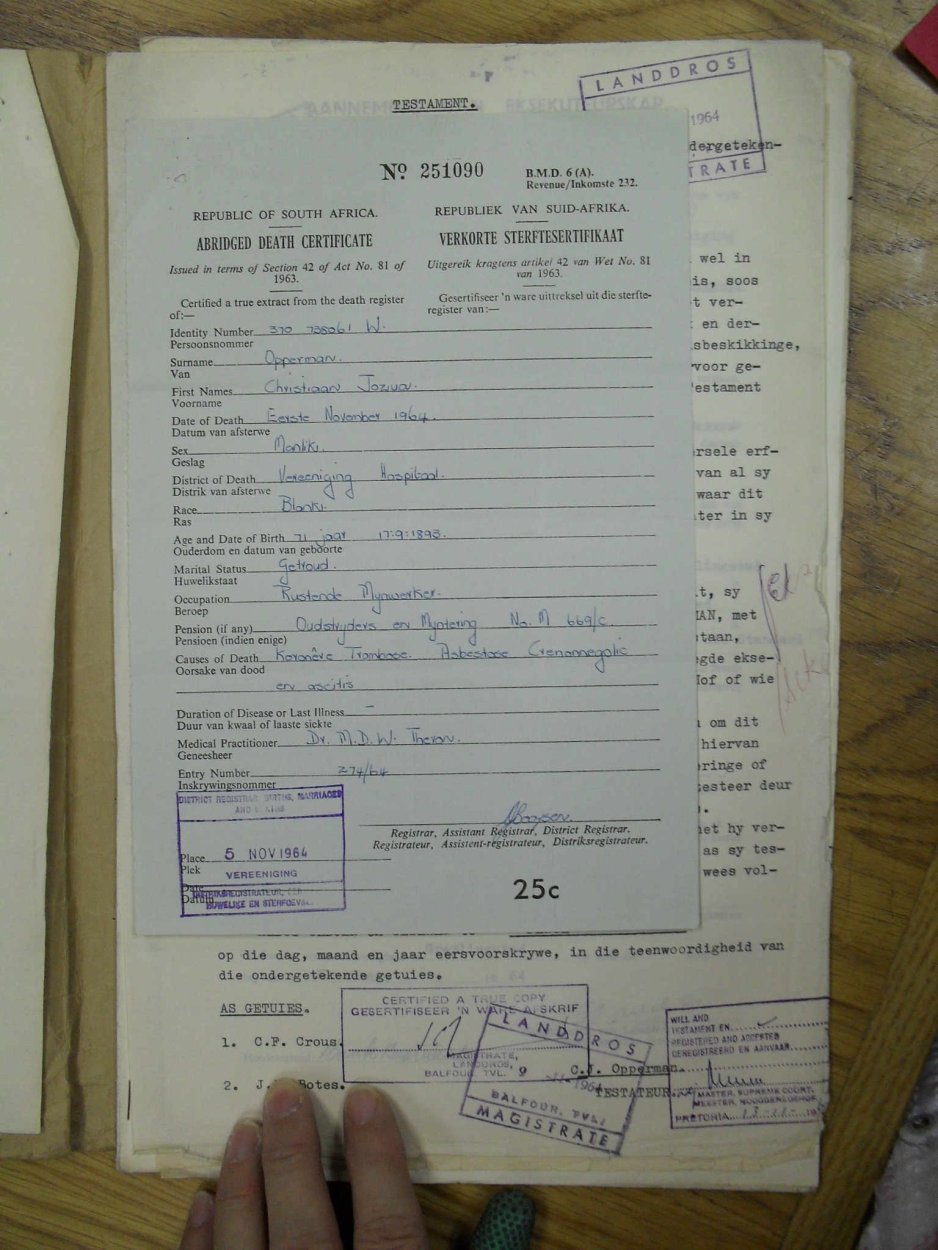 TESTAMENT.
LANDDROS
1964
TRATE
dergeteken-
Nº 251090
B.M.D. 6 (A).
Revenue/Inkomste 232.
REPUBLIC OF SOUTH AFRICA.
REPUBLIEK VAN SUID-AFRIKA.
ABRIDGED DEATH CERTIFICATE
VERKORTE STERFTESERTIFIKAAT
Issued in terms of Section 42 of Act No. 81 of
1963.
Uitgereik kragtens artikel 42 van Wet No. 81
van 1963.
Certified a true extract from the death register
of:—
Gesertifiseer 'n ware uittreksel uit die sterfte-
register van:—
Identity Number 370 738061 W.
Persoonsnommer
Surname Opperman.
Van
First Names Christiaan Jozua.
Voorname
Date of Death Eerste November 1964.
Datum van afsterwe
Sex Manlik.
Geslag
District of Death Vereeniging Hospitaal.
Distrik van afsterwe
Race Blank.
Ras
Age and Date of Birth 71 jaar 17:9:1893.
Ouderdom en datum van geboorte
Marital Status Getroud.
Huwelikstaat
Occupation Rustende Mynwerker.
Beroep
Pension (if any) Oudstryders en Myntering No. M 669/c.
Pensioen (indien enige)
Causes of Death Koronêre Trombose. Asbestose
Oorsake van dood
en ascitis
Duration of Disease or Last Illness –
Duur van kwaal of laaste siekte
Medical Practitioner Dr. M.D.W. Theron.
Geneesheer
Entry Number 274/64
Inskrywingsnommer
DISTRICT REGISTRAR BIRTHS, MARRIAGES
AND DEATHS
Place
Plek
5 NOV 1964
VEREENIGING
Date
Datum
DISTRIKSREGISTRATEUR,
HUWELIKE EN STERFGEV
Registrar, Assistant Registrar, District Registrar.
Registrateur, Assistent-registrateur, Distriksregistrateur.
25c
wel in
is, soos
t ver-
en der-
sbeskikkinge,
voor ge-
estament
rsele erf-
van al sy
waar dit
ter in sy
t, sy
MAN, met
staan,
egde ekse-
Hof of wie
om dit
hiervan
eringe of
esteer deur
et hy ver-
as sy tes-
wees vol-
op die dag, maand en jaar eersvoorskrywe, in die teenwoordigheid van
die ondergetekende getuies.
AS GETUIES.
1. C.F. Crous.
2. J. Botes.
CERTIFIED A TRUE COPY
GESERTIFISEER 'N WARE AFSKRIF
MAGISTRATE,
LANDDROS,
BALFOUR, TVL.
LANDDROS
9 1964
BALFOUR, TVL.
MAGISTRATE
C.J. Opperman.
TESTATEUR.
WILL AND
TESTAMENT EN
REGISTERED AND ACCEPTED
GEREGISTREERD EN AANVAAR
MASTER, SUPREME COURT.
MEESTER, HOOGGEREGSHOF
PRETORIA